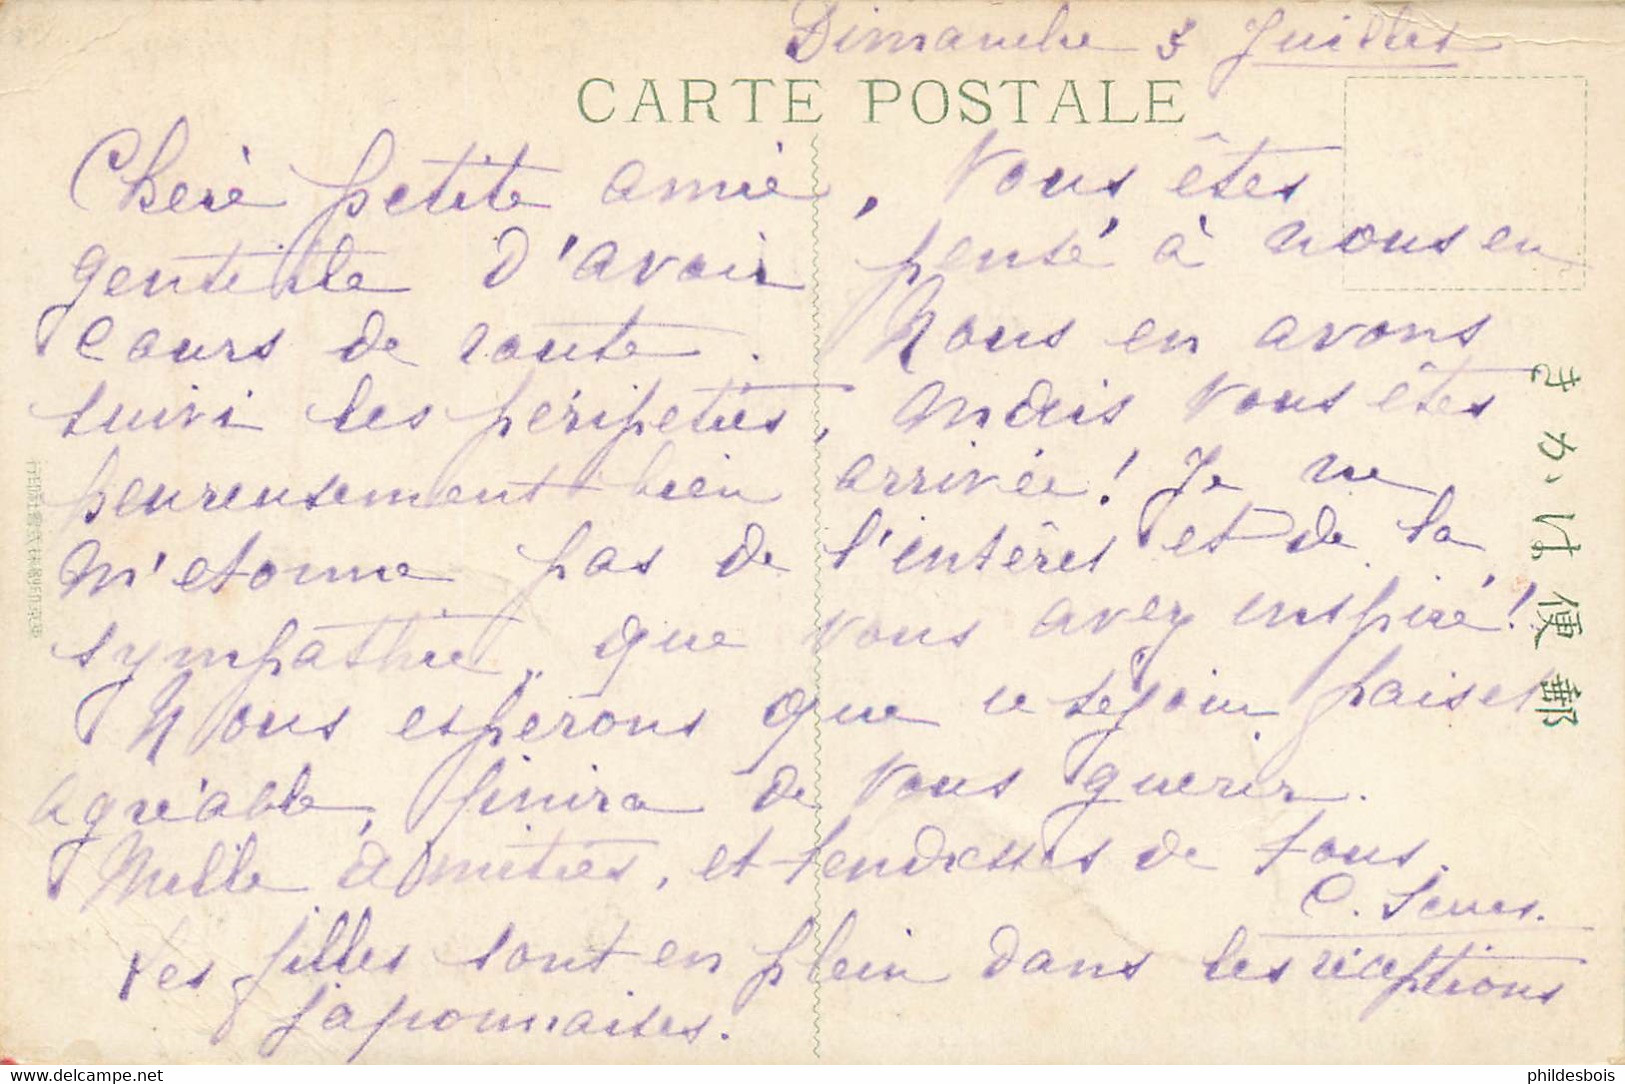 Dimanche 3 Juillet
CARTE POSTALE
Chère petite amie, Vous êtes
gentille d'avoir pensé à nous en
cours de route. Nous en avons
suivi les péripeties, mais vous êtes
heureusement bien arrivée! Je ne
m'etonne pas de l'intérêt et de la
sympathie, que vous avez inspiré!
Nous espérons que ce séjour, paisible
agréable, finira de vous guerir.
Mille amitiés, et tendresses de tous.
C. Serres.
Les filles sont en plein dans les réceptions
japonnaises.
きかは便郵
phildesbois